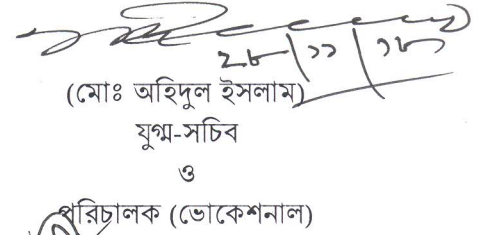 ২৮/১১/১৮
(মোঃ অহিদুল ইসলাম)
যুগ্ম-সচিব
ও
পরিচালক (ভোকেশনাল)